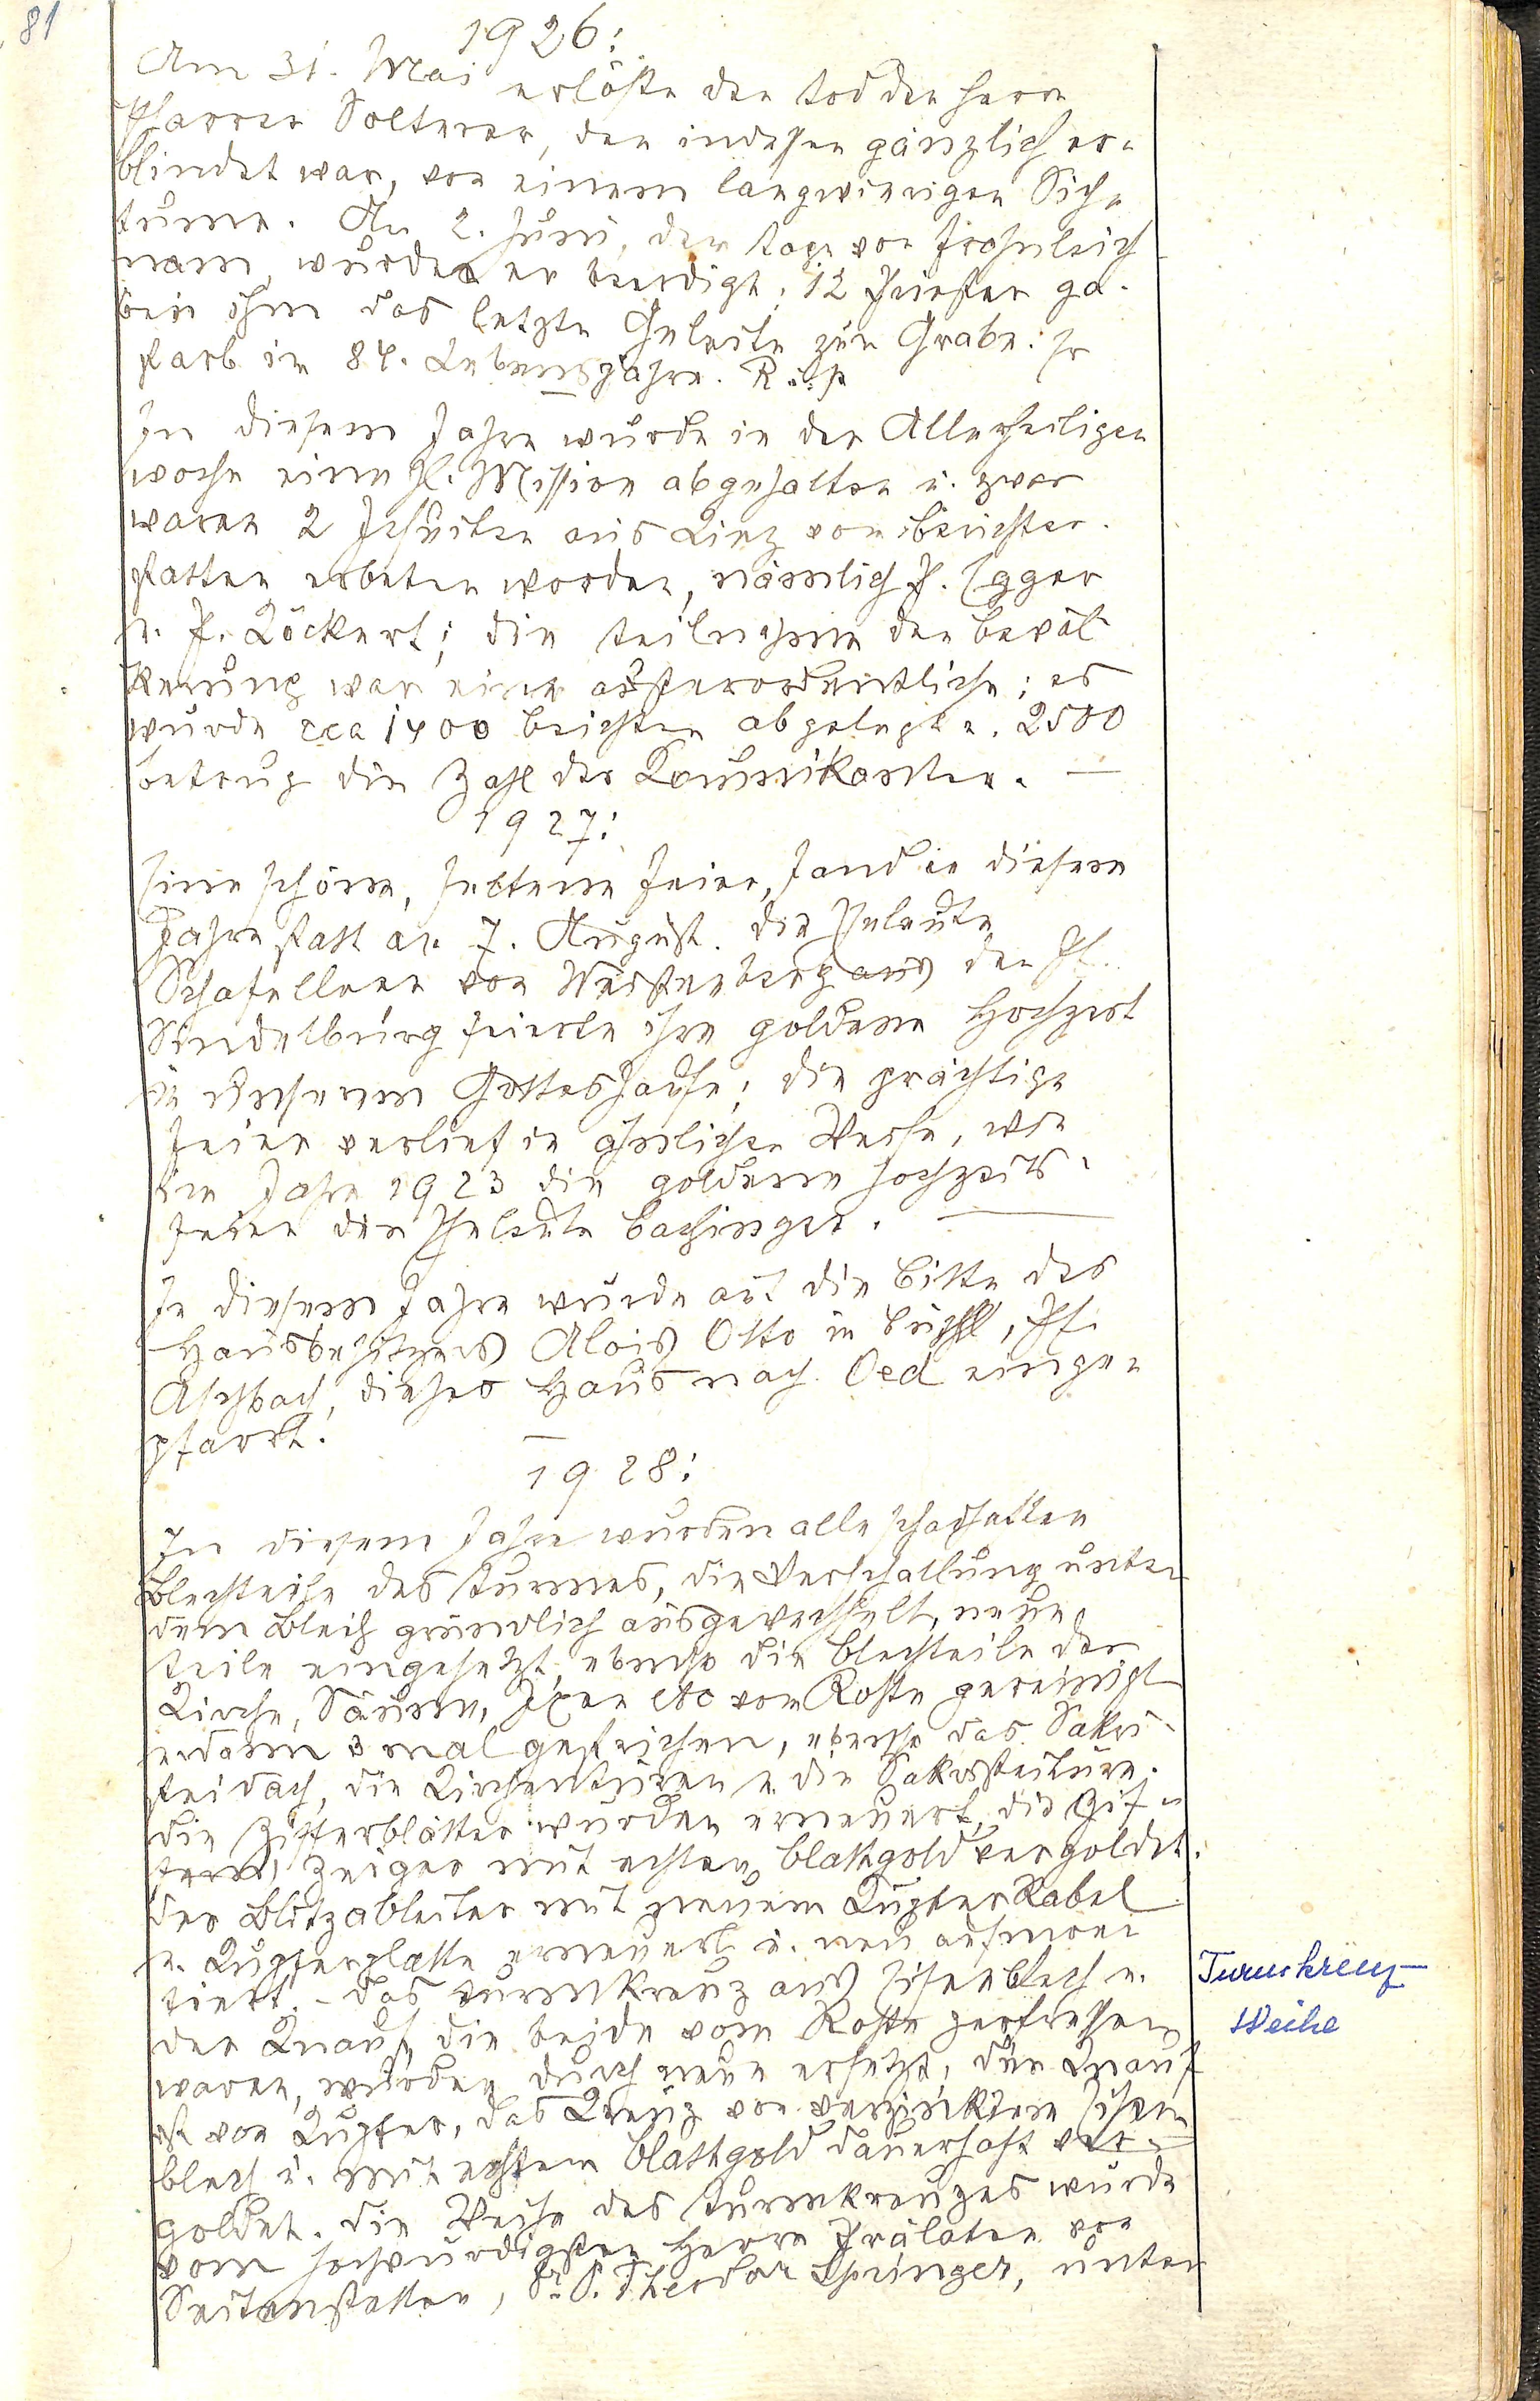 81
1926:
Am 31. Mai erlöste der Tod den Herrn
Pfarrer Solterer, der indessen gänzlich er-
blindet war, von einem langwierigen Siech-
tume. Am 2. Juni, dem Tage vor Frohnleich-
nam, wurde er beerdigt; 12 Priester ga-
ben ihm das letzte Geleite zum Grabe: Er
starb im 84. Lebensjahre. R.i.p.
In diesem Jahre wurde in der Allerheiligen
woche eine hl. Mission abgehalten u. zwar
waren 2 Jesuiten aus Linz vom Berichter-
statter erbeten worden, nämlich P. Egger
u. P. Löckert; die Teilnahme der Bevöl-
kerung war eine außerordentliche; es
wurde cca 1400 Beichten abgelegt u. 2500
betrug die Zahl der Kommunikanten. —
1927:
Eine schöne, seltene Feier, fand in diesem
Jahre statt am 7. August. Die Eheleute
Schafellner von Weistenberg aus der Pf.
Sindelburg feierte ihre goldene Hochzeit
in unserem Gotteshause; die prächtige
Feier verlief in ähnlicher Weise, wie
im Jahre 1923 die goldene Hochzeits-
feier der Eheleute Bachinger. —
In diesem Jahre wurde auf die Bitte des
Hausbesitzers Alois Otto in Büchl, Pf.
Aschbach, dieses Haus nach Oed einge-
pfarrt. —
1928:
In diesem Jahre wurden alle schadhaften
Blechteile des Turmes, die Verschallung unter
dem Blech gründlich ausgewechselt, neue
Teile eingesetzt, ebenso die Blechteile der
Kirche, Säume, Ixen etc vom Roste gereinigt
u. dann 3 mal gestrichen, ebenso das Sakri-
steidach, die Kirchentüren u. die Sakristeitüre.
Die Zifferblätter wurden erneuert, die Zif-
fern, Zeiger mit echtem Blattgold vergoldet.
Der Blitzableiter mit neuem Kupferkabel
u. Kupferplatte erneuert u. neu aufmon
tiert. - Das Turmkreuz aus Eisenblech u.
der Knauf, die beide vom Roste zerfressen
waren, wurden durch neue ersetzt, der Knauf
ist von Kupfer, das Kreuz von verzinktem Eisen
blech u. mit echtem Blattgold dauerhaft ver-
goldet. Die Weihe des Turmkreuzes wurde
vom hochwürdigsten Herrn Prälaten von
Seitenstetten, Dr. P. Theodor Springer, unter
Turmkreuz-
Weihe